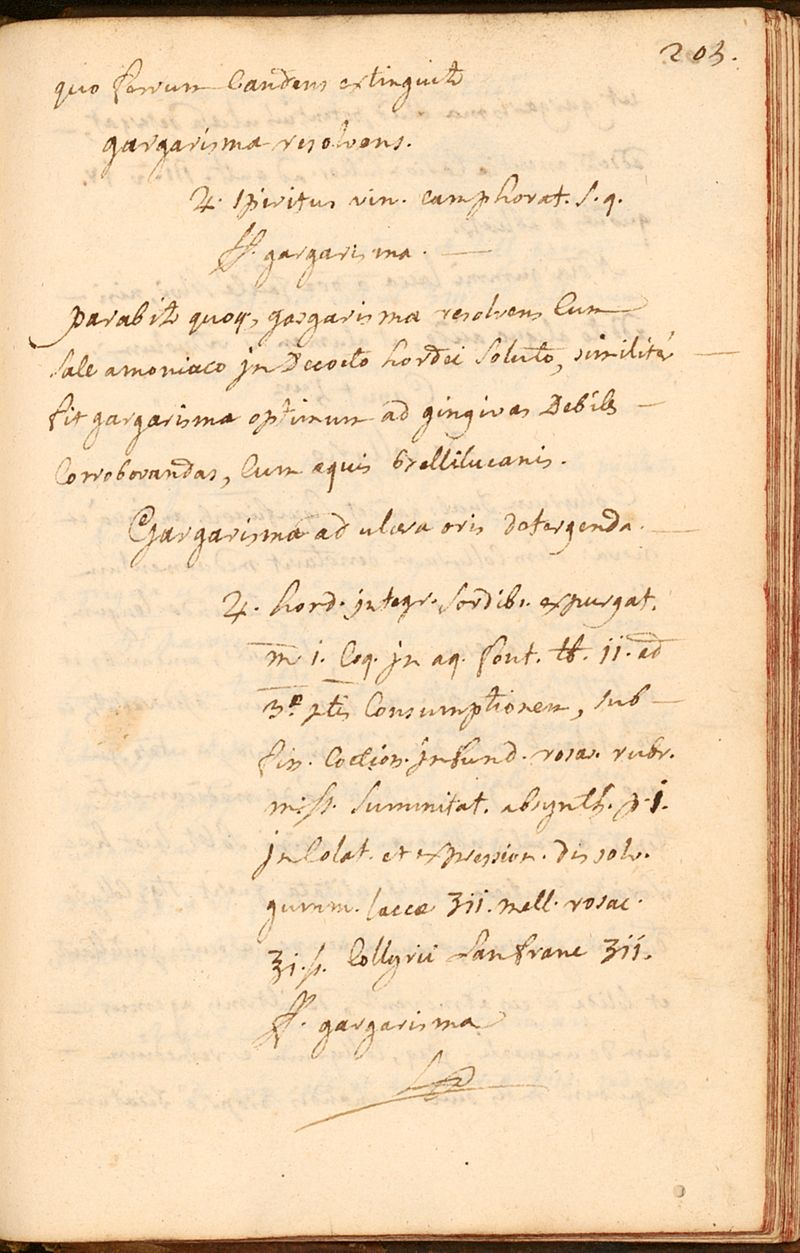 203.
quo ferrum Candens extinguitr
gargarisma resolvens.
♃. spiritus vin. camphorat. s. q.
ff. gargarisma.
parabitr quoqs gargarisma resolvens Cum
sale amoniaco jn Decocto hordei soluto, similitr
fit gargarisma optimum ad gingivas Debiles
Corroborandas, Cum aquis Bellilucanis.
Gargarisma ad ulcera oris detergenda.
♃. hord. jntegr. sordibs. expurgat.
m i. Coq. jn aq. font. ℔. ii. ad
3.æ ptis Consumptionem, sub
fin. Coction. jnfund. rosar. rubr.
m. ß. summitat. absynth. p. i.
jn Colat. et expression. dissolv.
gumm. laccæ ʒii. mell. rosac.
℥i. ß. Collyrii Lanfranc ʒii.
ff. gargarisma